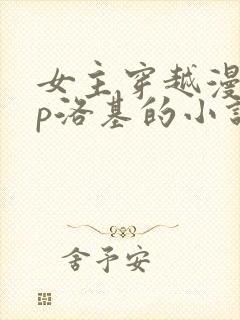 女主穿越漫
p洛基的小
舍予安